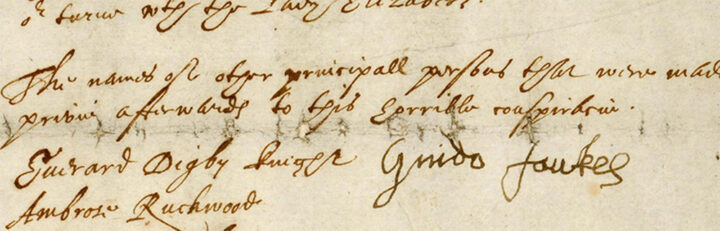 or turne wth the Lady Elizabeth.
The names of other principall persons that were mad
privie afterwards to this horrible conspiracie.
Everard Digby knight Guido Fawkes
Ambrose Ruckwood